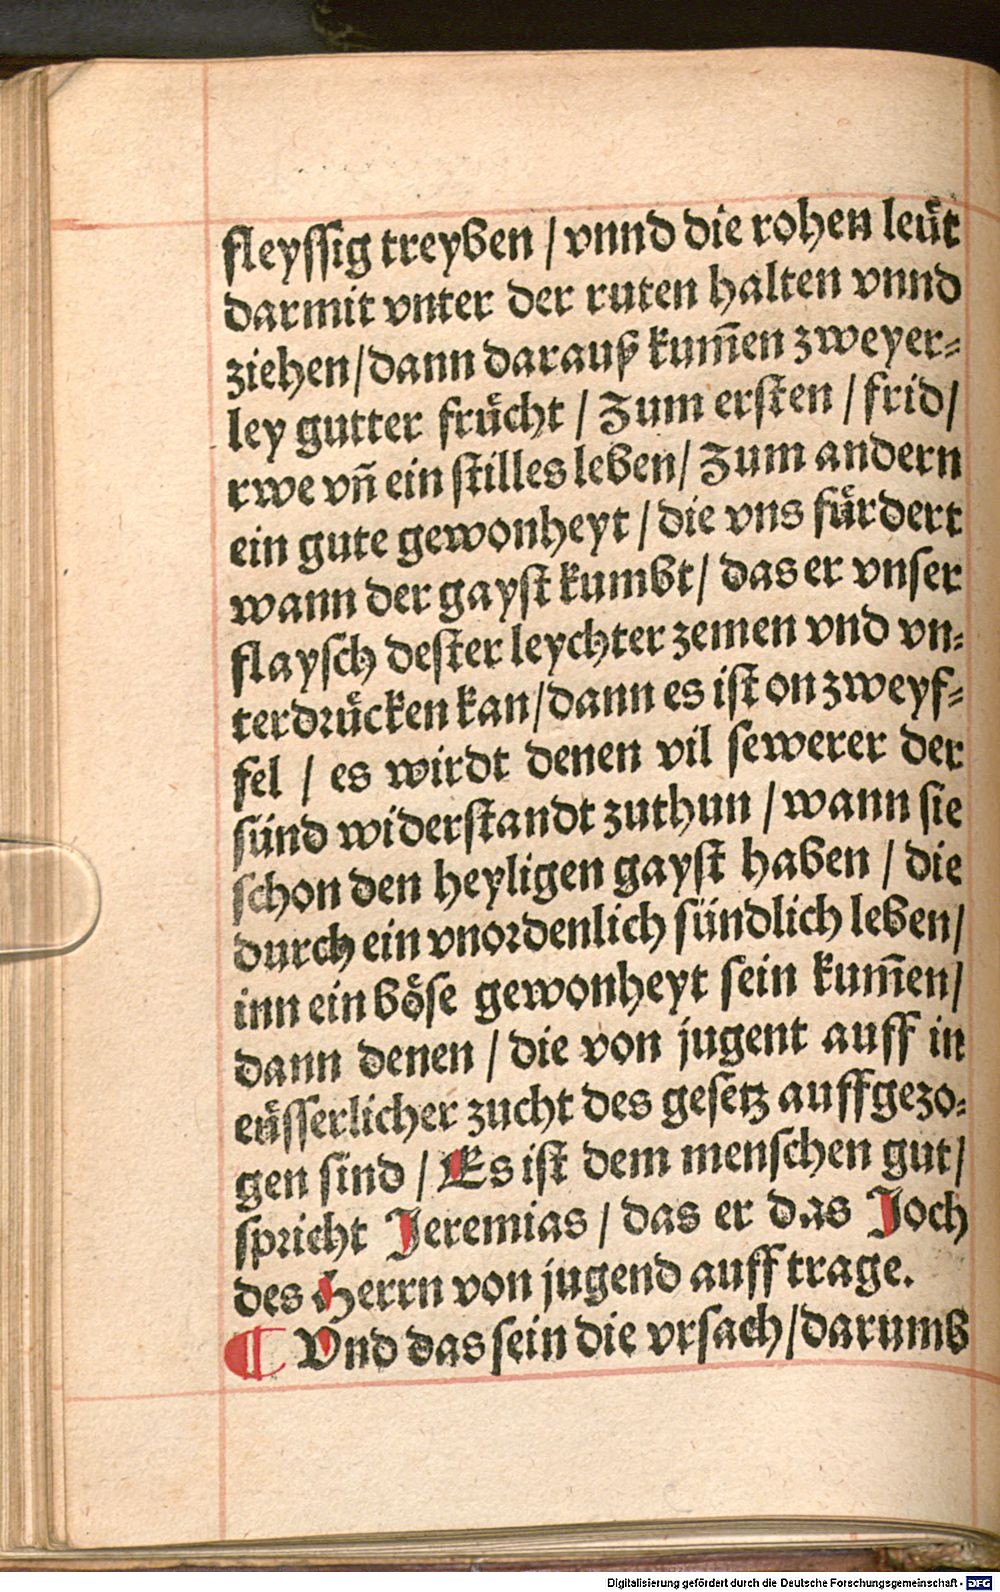 fleyssig treyben / vnnd die rohen leuͤt
darmit vnter der ruten halten vnnd
ziehen / dann darauß kum̄en zweyer⸗
ley gutter fruͤcht / Zum ersten / frid /
rwe vn̄ ein stilles leben / Zum andern
ein gute gewonheyt / die vns fuͤrdert
wann der gayst kumbt / das er vnser
flaysch dester leychter zemen vnd vn⸗
terdruͤcken kan / dann es ist on zweyf⸗
fel / es wirdt denen vil sewerer der
sünd widerstandt zuthun / wann sie
schon den heyligen gayst haben / die
durch ein vnordenlich sündlich leben /
inn ein boͤse gewonheyt sein kum̄en /
dann denen / die von jugent auff in
euͤsserlicher zucht des gesetz auffgezo⸗
gen sind / Es ist dem menschen gut /
spricht Jeremias / das er das Joch
des Herrn von jugend auff trage.
¶ Vnd das sein die vrsach / darumb
Digitalisierung gefördert durch die Deutsche Forschungsgemeinschaft - DFG